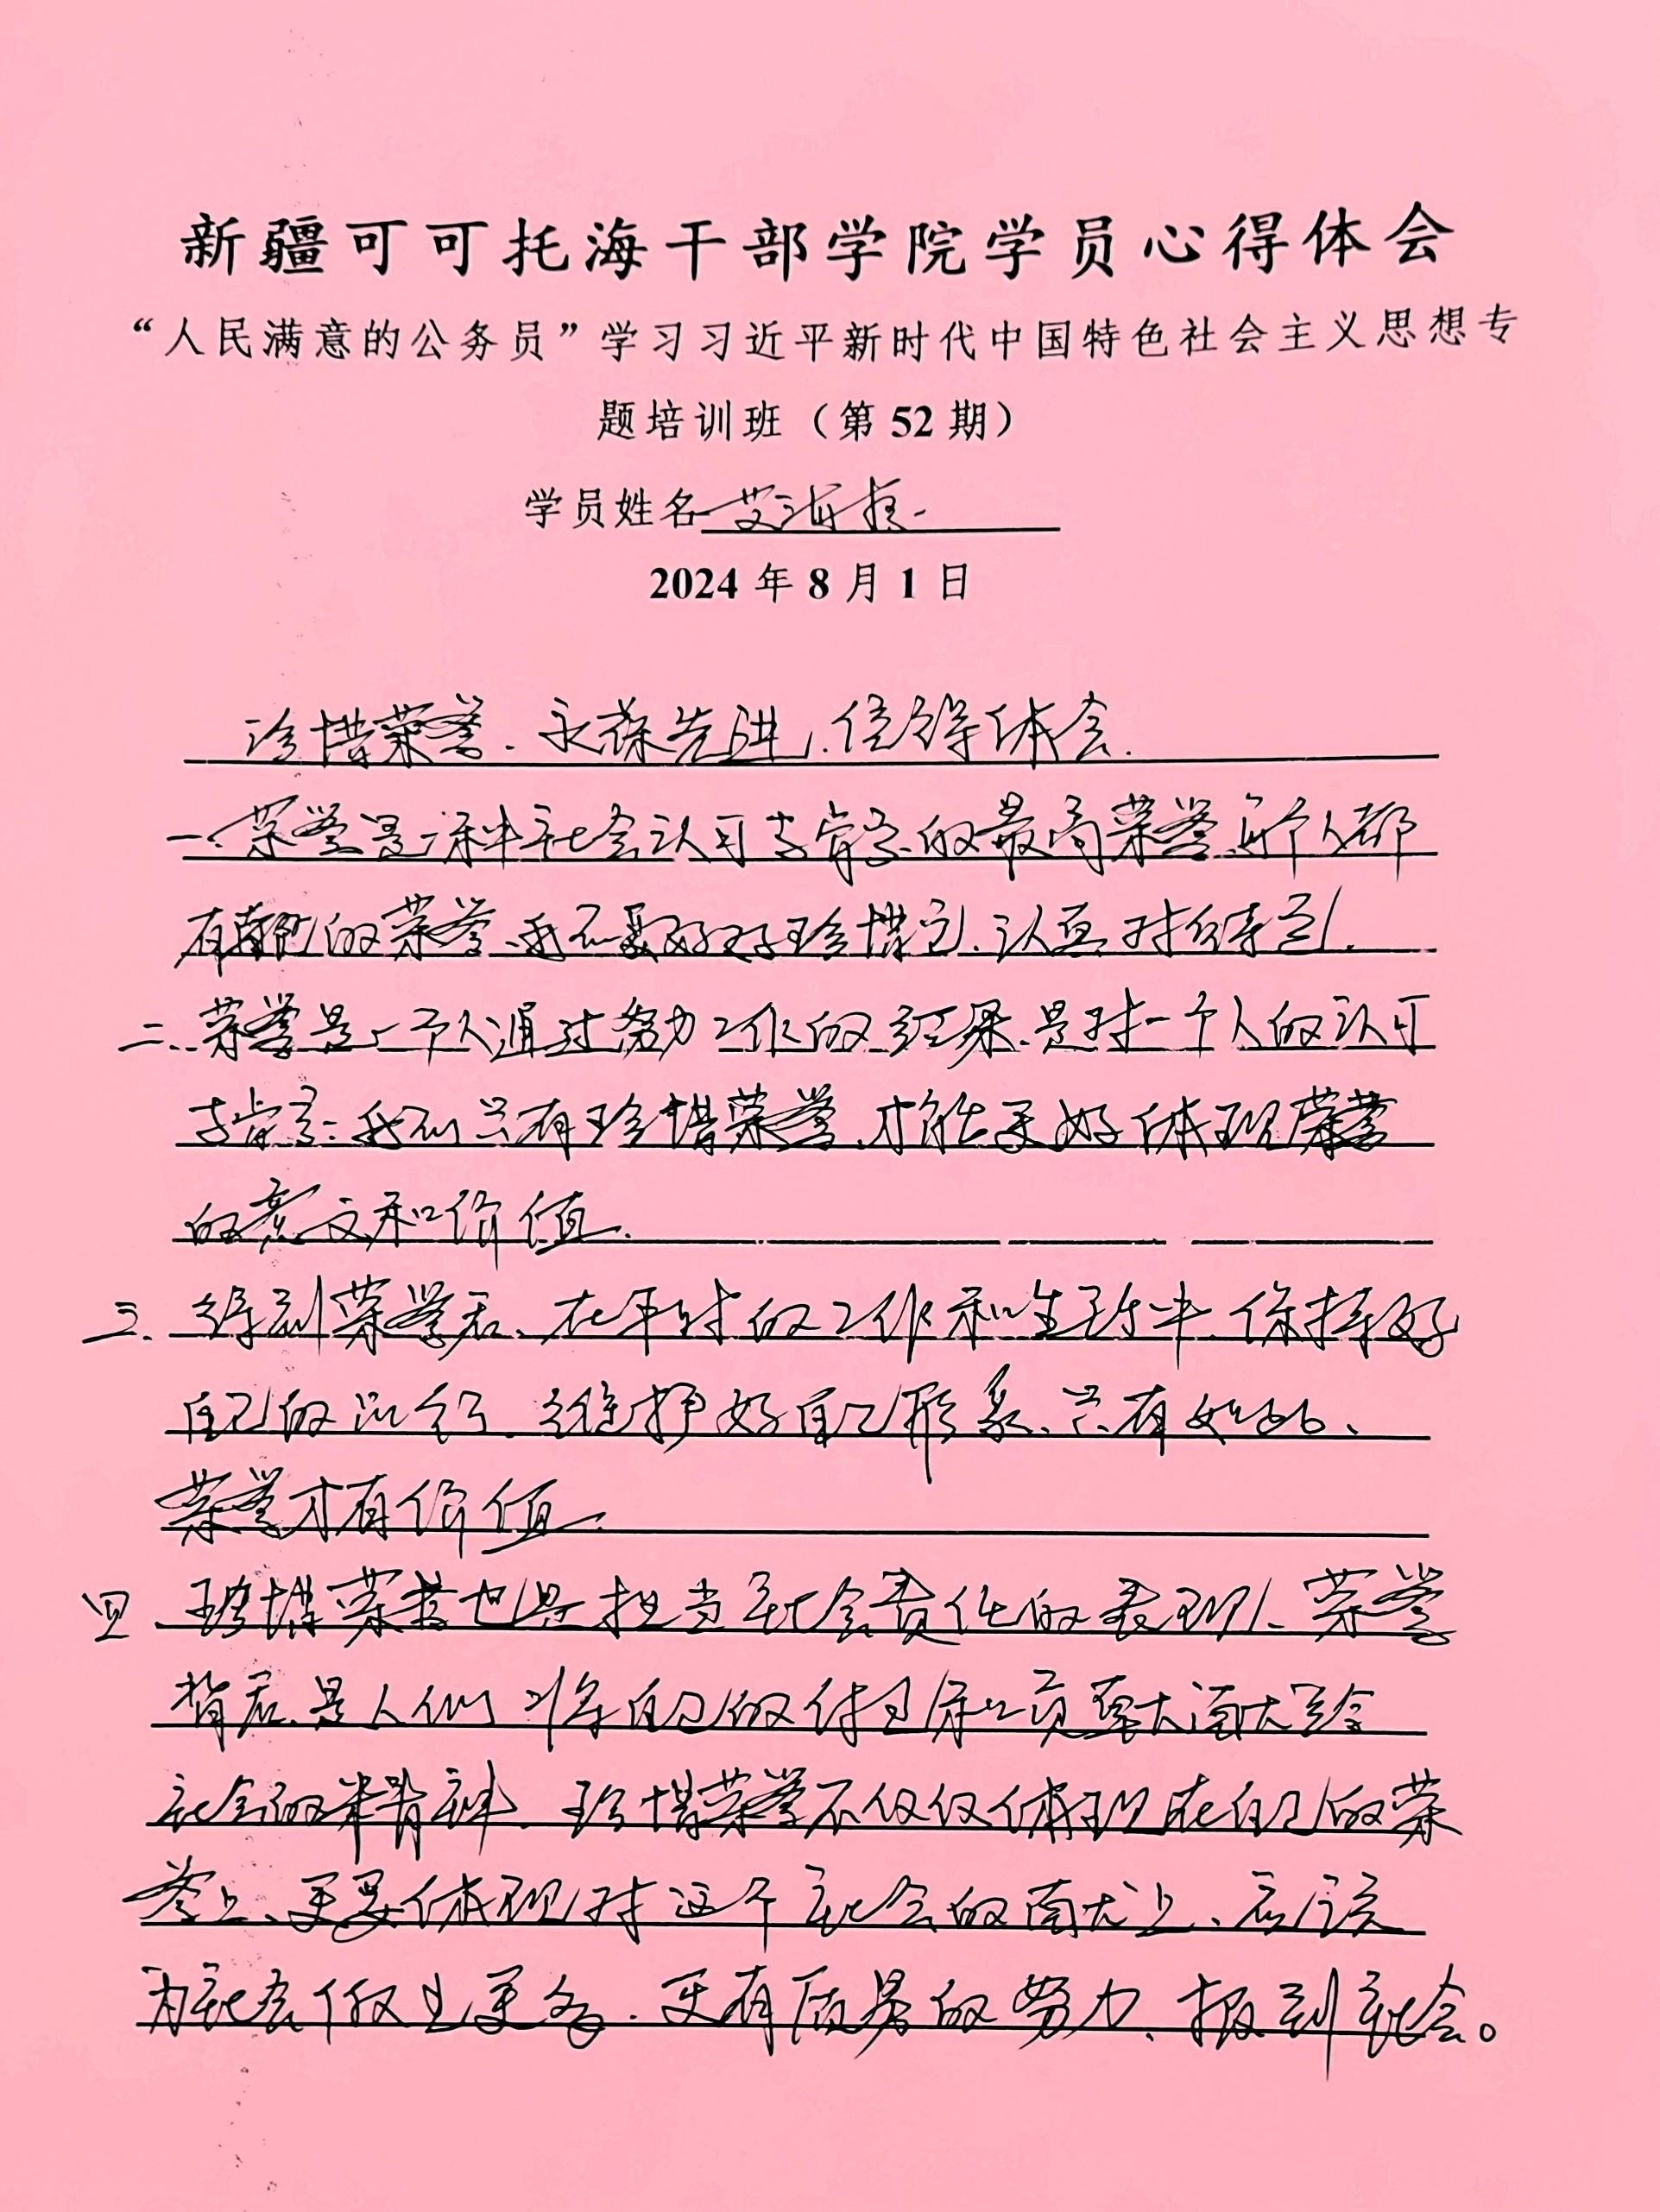 新疆可可托海干部学院学员心得体会
“人民满意的公务员”学习习近平新时代中国特色社会主义思想专
题培训班（第52期）
学员姓名 艾海
2024年8月1日
珍惜荣誉、永葆先进、体会.
一、荣誉是一种社会认可肯定的最高荣誉、每个人都
有的荣誉、我们要好好珍惜它、认真对待它.
二、荣誉是一个人通过努力工作的结果、是对一个人的认可
与肯定：我们只有珍惜荣誉、才能更好体现荣誉
的意义和价值.
三、得到荣誉后、在平时的工作和生活中、保持好
自己的言行、维护好自己形象、只有如此、
荣誉才有价值.
四、珍惜荣誉也是担当社会责任的表现、荣誉
背后、是人们将自己的付出
社会的精神、珍惜荣誉不仅仅体现在自己的荣
誉上、更要体现对这个社会的贡献上、应该
为社会做出更多、更有质量的努力、报到社会。